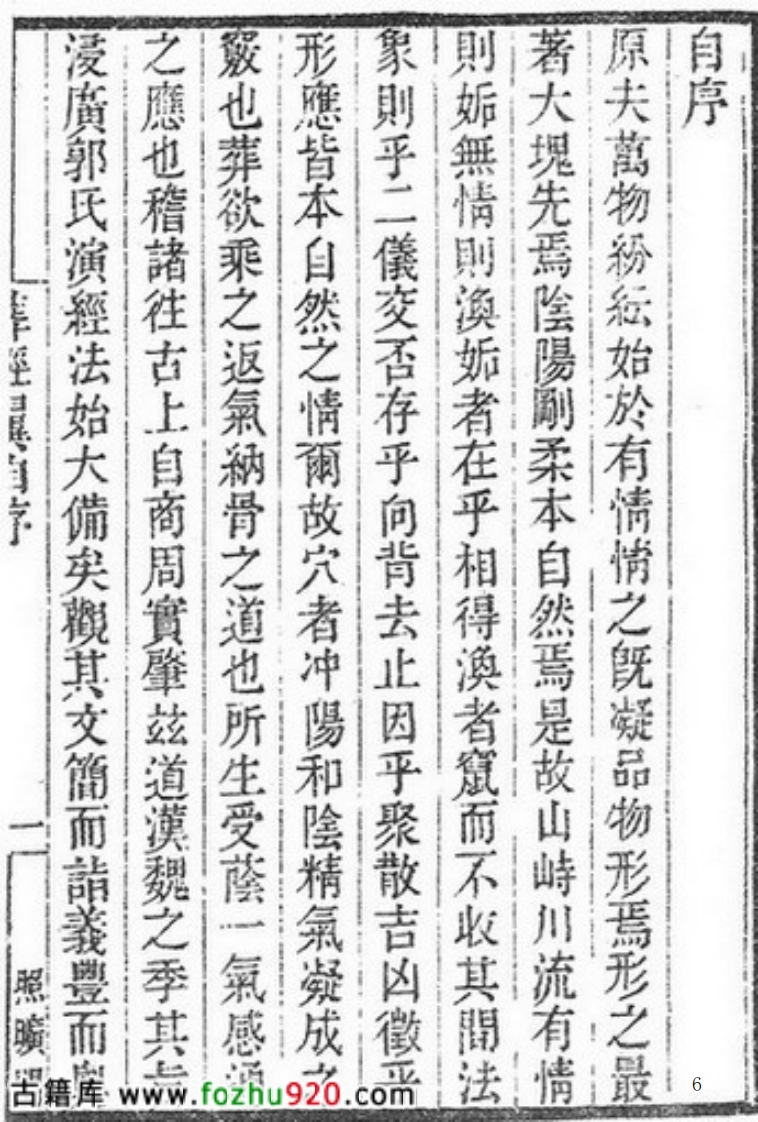 自序
原夫萬物紛紜始於有情情之旣凝品物形焉形之最
著大塊先焉陰陽剛柔本自然焉是故山峙川流有情
則姤無情則渙姤者在乎相得渙者竄而不收其間法
象則乎二儀交否存乎向背去止因乎聚散吉凶徵乎
形應皆本自然之情爾故穴者冲陽和陰精氣凝成之
竅也葬欲乘之返氣納骨之道也所生受蔭一氣感
之應也稽諸往古上自商周實肇玆道漢魏之季其
浸廣郭氏演經法始大備矣觀其文簡而詣義豐而
葬經翼自序
一
照曠
6
古籍库 www.fozhu920.com